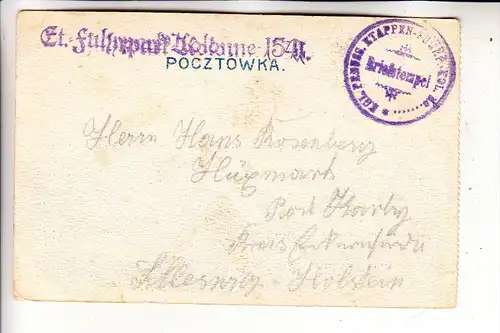 Et. Fuhrpark Kolonne 154.
POCZTÓWKA.
KGL. PREUSS. ETAPPEN-FUHRP. KOL. No.
Briefstempel
Herrn Hans Rosenberg
Hüxmark
Post Karby
Kreis Eckernförde
Schleswig-Holstein